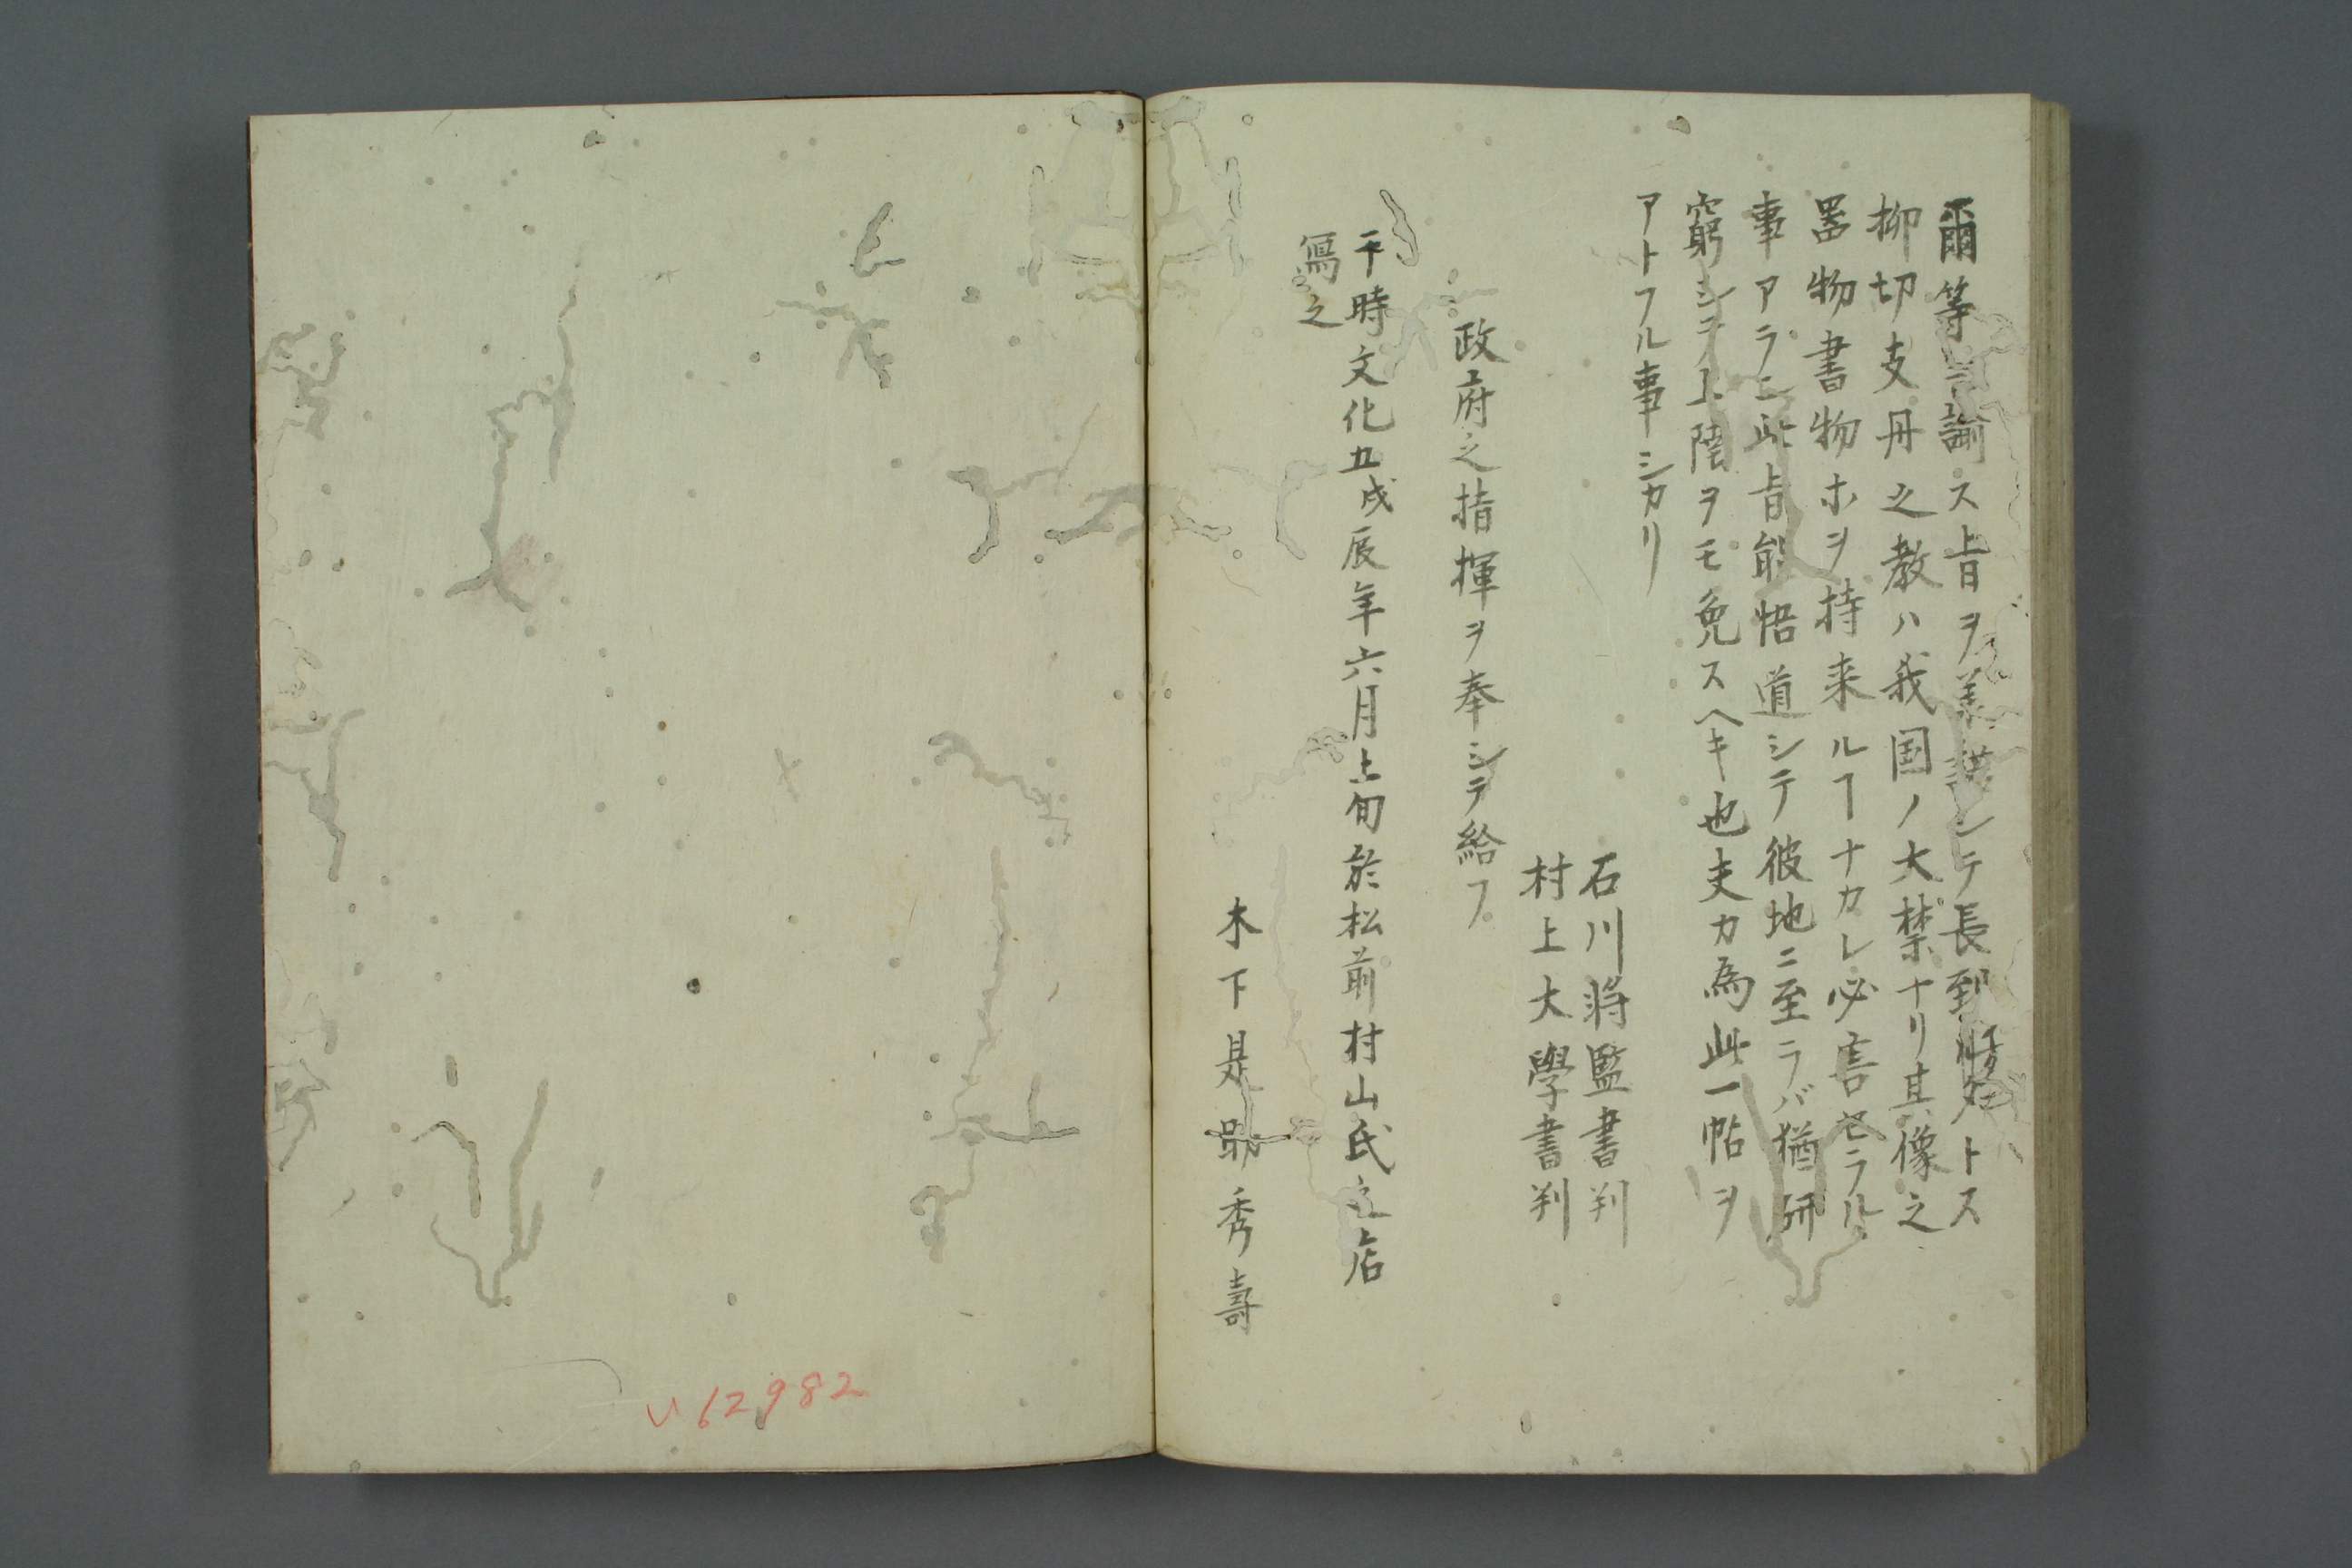 爾等ニ諭ス旨ヲ シテ長到 トス
抑切支丹之教ハ我国ノ大禁ナリ其像之
器物書物ホヲ持来ルヿナカレ必害セラル
事アラン此旨能悟道シテ彼地ニ至ラバ猶研
窮シテ上陸ヲモ免スヘキ也夫カ為此一帖ヲ
アトフル事シカリ
石川将監書判
村上大學書判
政府之指揮ヲ奉シテ給フ
干時文化五戊辰年六月上旬於松前村山氏之店
寫之
木下是 秀壽
い62982